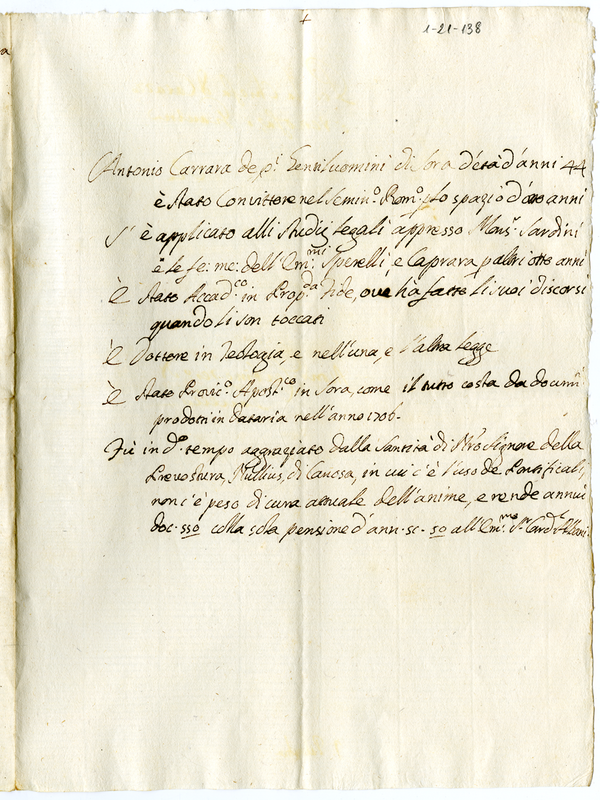 +
1-21-138
a
Antonio Carrara de p.i Gentiluomini di Sora d'età d'anni 44
è stato Convittore nel Semin.o Rom.o p lo spazio d'otto anni
S'è applicato alli studij legali appresso Mons.r Sardini
e le fe: me: dell'Em.mi Sperelli, e Caprara p altri otto anni
È stato Accad.co in Prop.da Fide, ove ha fatto li suoi discorsi
quando li son toccati
È Dottore in Teologia, e nell'una, e l'altra legge
È stato Provic.o Apost.co in Sora, come il tutto costa da docum.ti
prodotti in Dataria nell'anno 1706.
Fù in d.o tempo aggraziato dalla Santità di N'ro Signore della
Prevostura, Nullius, di Canosa, in cui c'è l'uso de Pontificali,
non c'è peso di cura attuale dell'anime, e rende annui
doc. 550 colla sola pensione d'ann. sc. 50 all'Em.mo S.r Card.l Albani